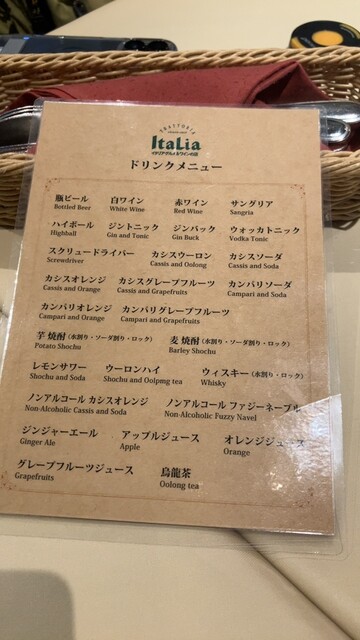 TRATTORIA
Italia
イタリアグルメ&ワインの店
ドリンクメニュー
瓶ビール 白ワイン 赤ワイン サングリア
Bottled Beer White Wine Red Wine Sangria
ハイボール ジントニック ジンバック ウォッカトニック
Highball Gin and Tonic Gin Buck Vodka Tonic
スクリュードライバー カシスウーロン カシスソーダ
Screwdriver Cassis and Oolong Cassis and Soda
カシスオレンジ カシスグレープフルーツ カンパリソーダ
Cassis and Orange Cassis and Grapefruits Campari and Soda
カンパリオレンジ カンパリグレープフルーツ
Campari and Orange Campari and Grapefruits
芋 焼酎 (水割り・ソーダ割り・ロック) 麦 焼酎 (水割り・ソーダ割り・ロック)
Potato Shochu Barley Shochu
レモンサワー ウーロンハイ ウィスキー (水割り・ロック)
Shochu and Soda Shochu and Oolpmg tea Whisky
ノンアルコール カシスオレンジ ノンアルコール ファジーネーブル
Non-Alcoholic Cassis and Soda Non-Alcoholic Fuzzy Navel
ジンジャーエール アップルジュース オレンジジュース
Ginger Ale Apple Orange
グレープフルーツジュース 烏龍茶
Grapefruits Oolong tea